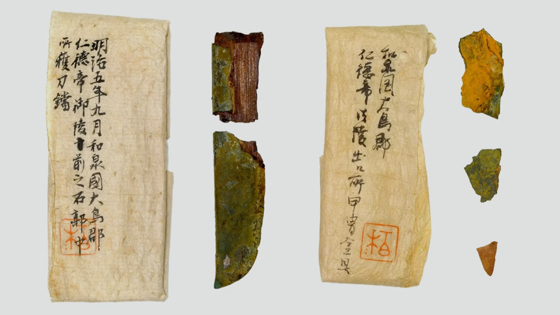 明治五年九月和泉國大鳥郡
仁德帝御陵寸前之石郭中
所獲刀鐺
柏
和泉國大鳥郡
仁德帝御陵出口所甲冑金具
柏